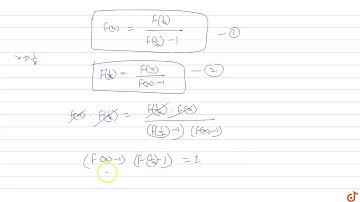 f(x) = F(1/x) / F(1/x) - 1 — ①
x → 1/x
F(1/x) = F(x) / F(x) - 1 — ②
F(x) · F(1/x) = F(1/x) · F(x) / (F(1/x) - 1) (F(x) - 1)
(F(x) - 1) (F(1/x) - 1) = 1